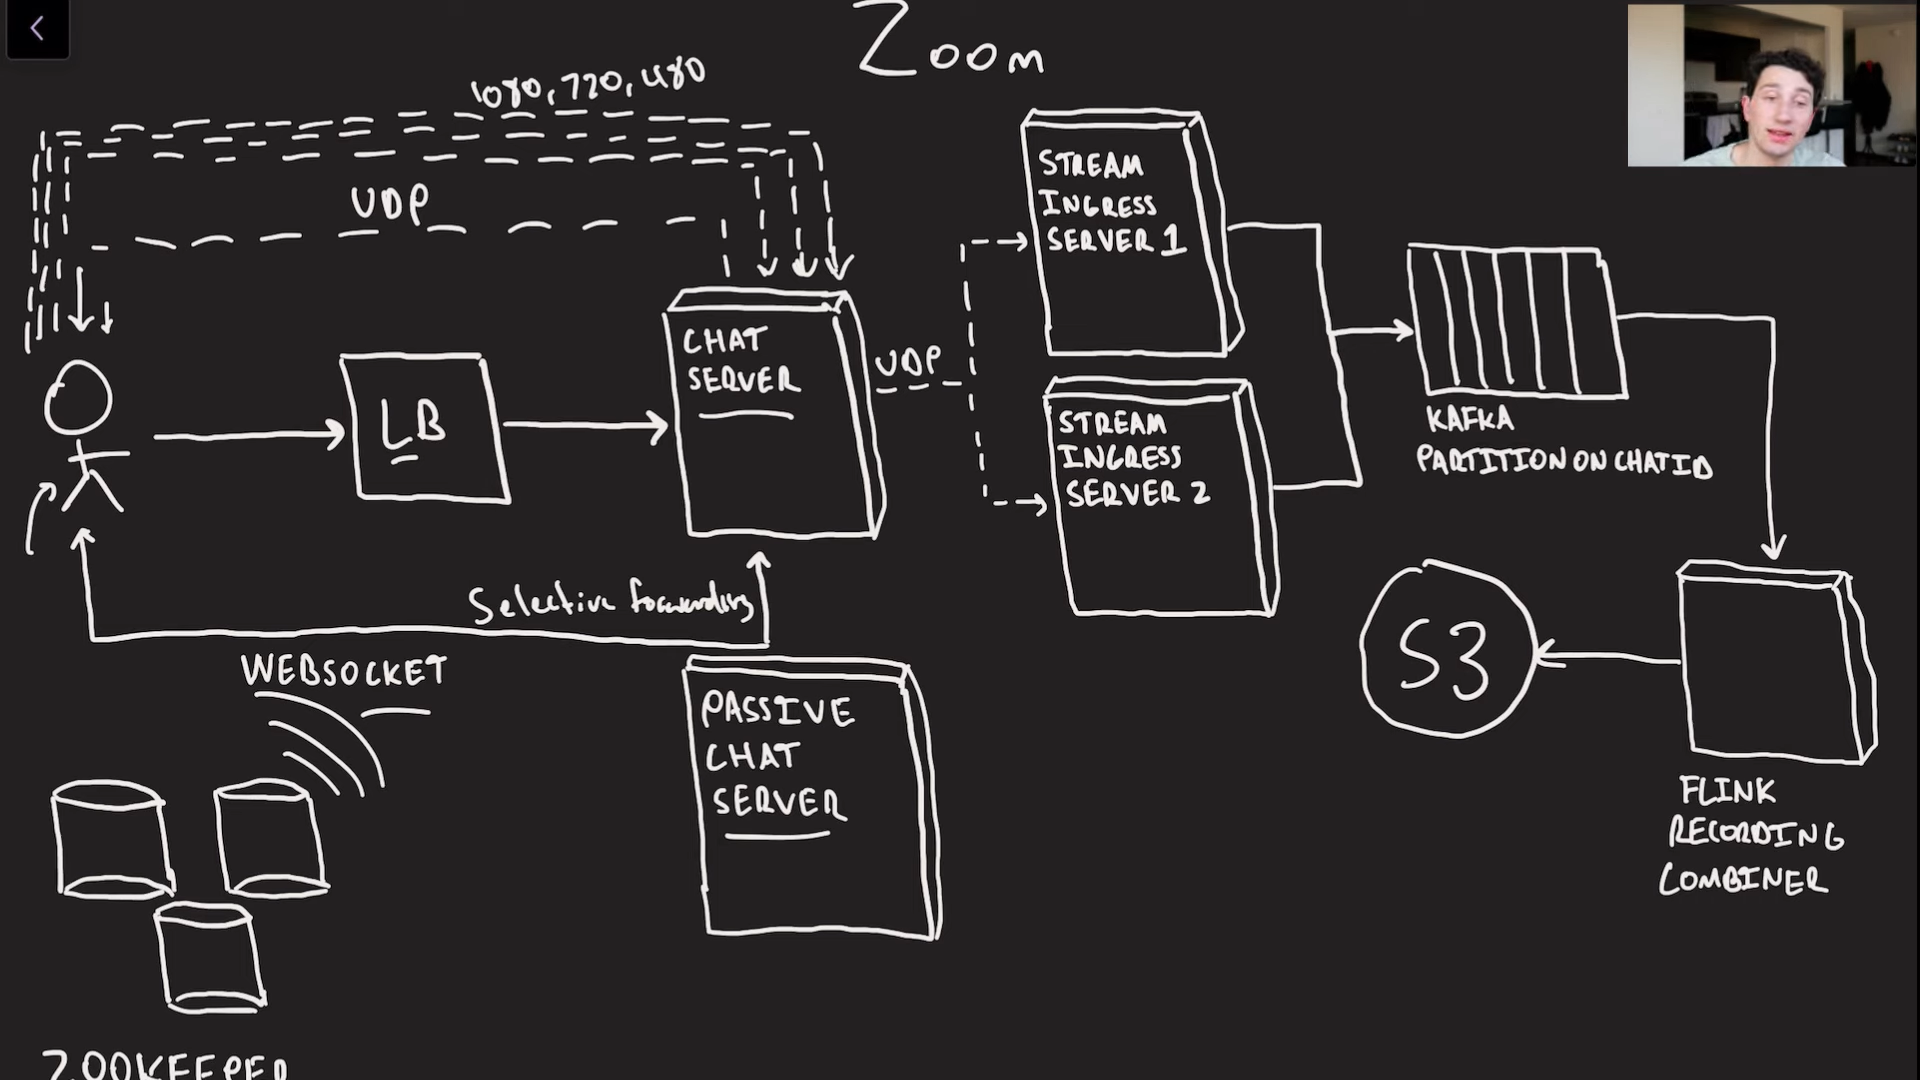 Zoom
1080, 720, 480
UDP
STREAM
INGRESS
SERVER 1
CHAT
SERVER
UDP
LB
STREAM
INGRESS
SERVER 2
KAFKA
PARTITION ON CHATID
Selective forwarding
WEBSOCKET
S3
PASSIVE
CHAT
SERVER
FLINK
RECORDING
COMBINER
ZOOKEEPER